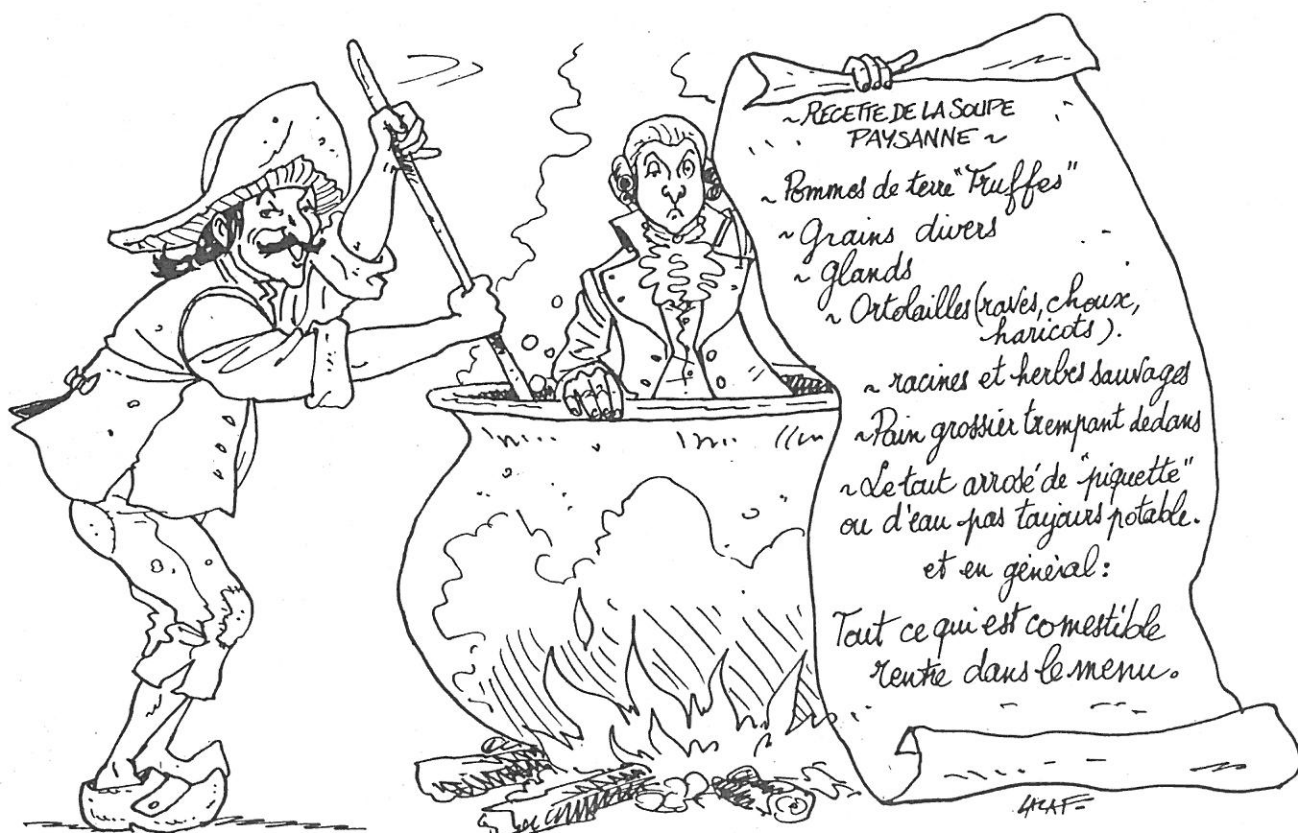 ~ RECETTE DE LA SOUPE
PAYSANNE ~
~ Pommes de terre "Truffes"
~ Grains divers
~ glands
~ Ortolailles (raves, choux,
haricots).
~ racines et herbes sauvages
~ Pain grossier trempant dedans
~ Le tout arrosé de "piquette"
ou d'eau pas toujours potable.
et en général:
Tout ce qui est comestible
rentre dans le menu.